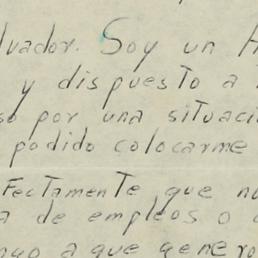 lvador. Soy un H
y dispuesto a
so por una situaci
podido colocarme
fectamente que no
a de empleos o
ngo a que genero